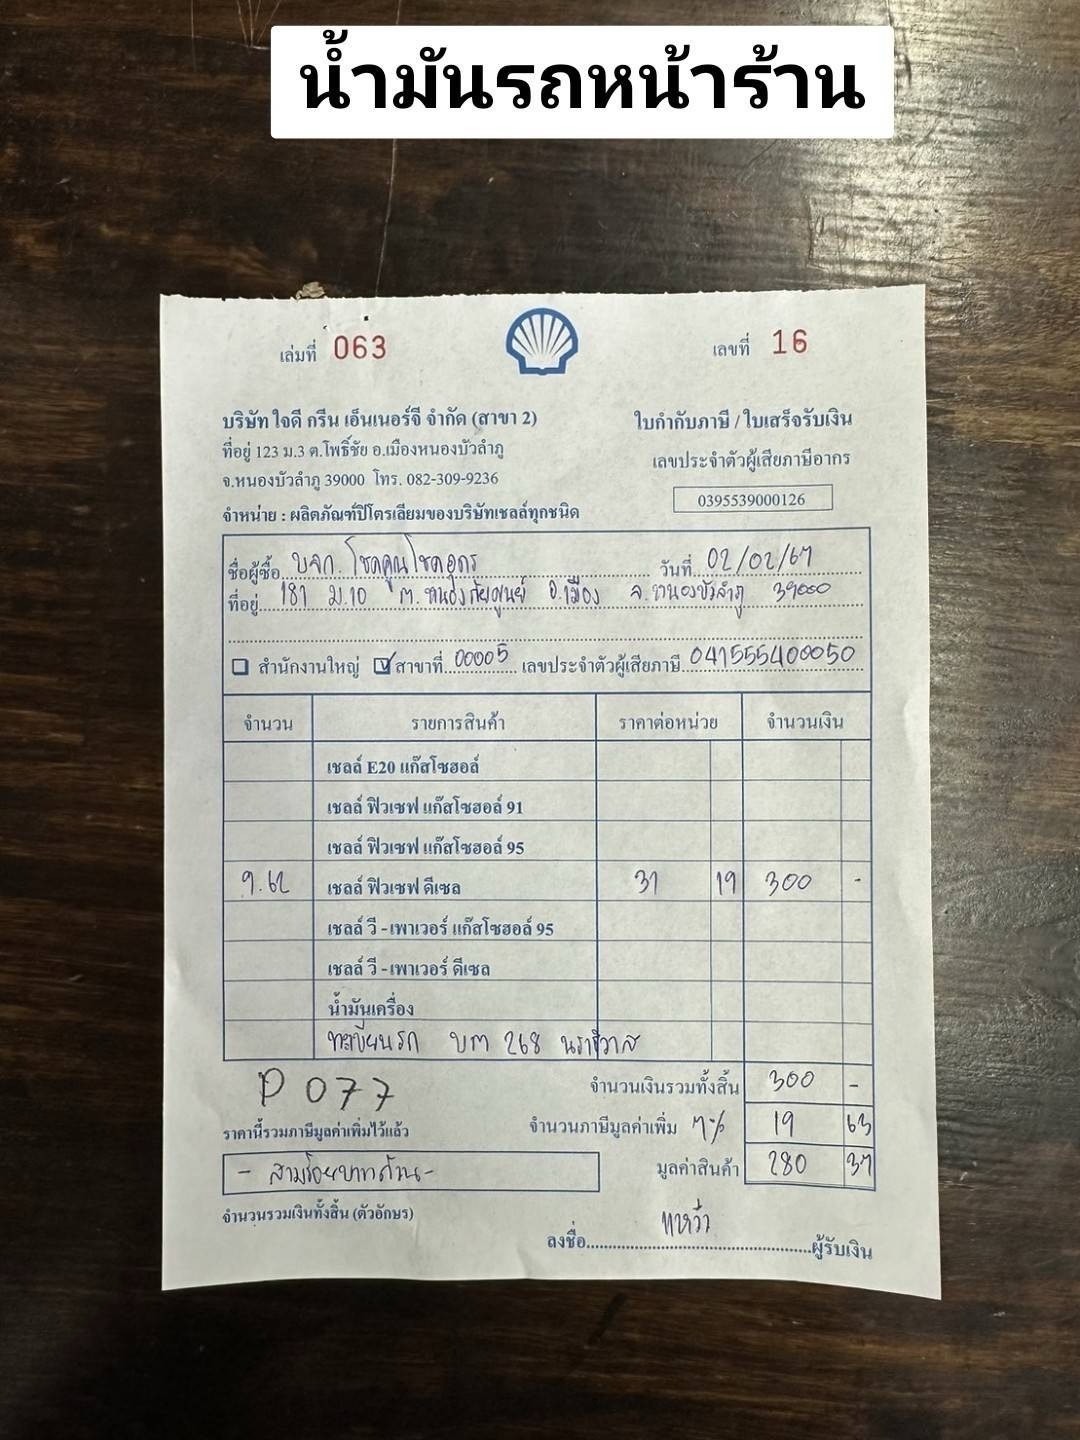 น้ำมันรถหน้าร้าน
เล่มที่ 063
เลขที่ 16
บริษัท ใจดี กรีน เอ็นเนอร์จี จำกัด (สาขา 2)
ใบกำกับภาษี / ใบเสร็จรับเงิน
ที่อยู่ 123 ม.3 ต.โพธิ์ชัย อ.เมืองหนองบัวลำภู
เลขประจำตัวผู้เสียภาษีอากร
จ.หนองบัวลำภู 39000 โทร. 082-309-9236
0395539000126
จำหน่าย : ผลิตภัณฑ์ปิโตรเลียมของบริษัทเชลล์ทุกชนิด
ชื่อผู้ซื้อ บจก. โชคคูณโชคอุดร วันที่ 02/02/67
ที่อยู่ 181 ม.10 ต.หนองภัยศูนย์ อ.เมือง จ.หนองบัวลำภู 39000
สำนักงานใหญ่ สาขาที่ 00005 เลขประจำตัวผู้เสียภาษี 041555400050
จำนวน รายการสินค้า ราคาต่อหน่วย จำนวนเงิน
เชลล์ E20 แก๊สโซฮอล์
เชลล์ ฟิวเซฟ แก๊สโซฮอล์ 91
เชลล์ ฟิวเซฟ แก๊สโซฮอล์ 95
9.62 เชลล์ ฟิวเซฟ ดีเซล 31 19 300 -
เชลล์ วี - เพาเวอร์ แก๊สโซฮอล์ 95
เชลล์ วี - เพาเวอร์ ดีเซล
น้ำมันเครื่อง
ทะเบียนรถ บต 268 นราธิวาส
P 077
จำนวนเงินรวมทั้งสิ้น 300 -
ราคานี้รวมภาษีมูลค่าเพิ่มไว้แล้ว
จำนวนภาษีมูลค่าเพิ่ม 7% 19 63
- สามร้อยบาทถ้วน -
มูลค่าสินค้า 280 37
จำนวนรวมเงินทั้งสิ้น (ตัวอักษร)
ลงชื่อ ผู้รับเงิน